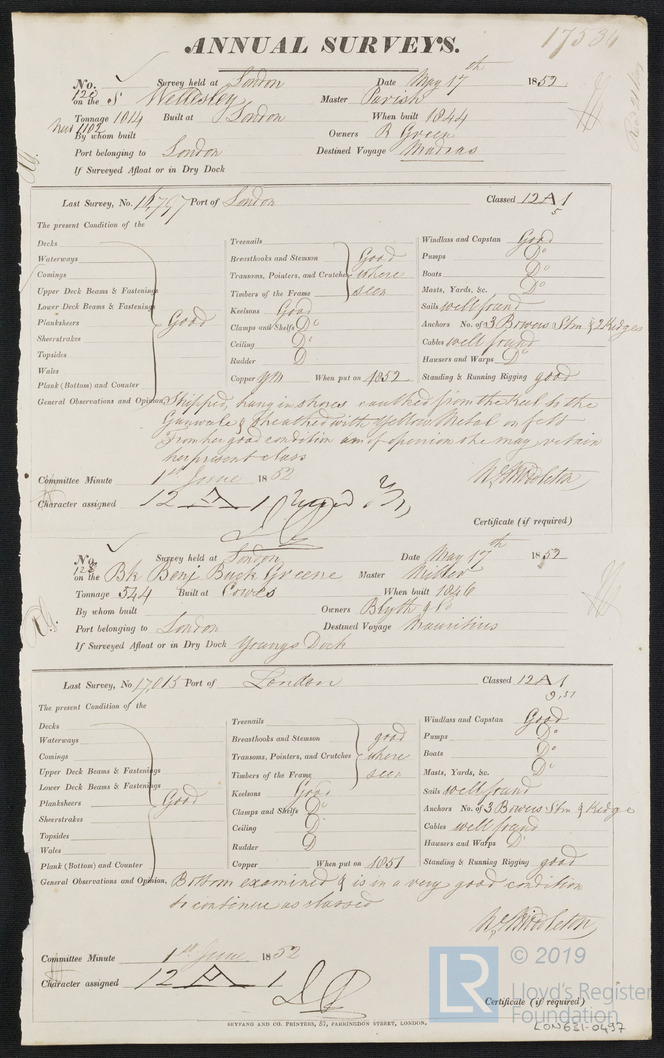 17534
ANNUAL SURVEYS.
No. 120 Survey held at London Date May 17th 1852
on the S Wellesley Master Parish
Tonnage 1014 Built at London When built 1844
New 1102
By whom built Owners R Green
Port belonging to London Destined Voyage Madras
If Surveyed Afloat or in Dry Dock
Last Survey, No. 16,797 Port of London Classed 12 A 1
5
The present Condition of the
Decks
Waterways
Comings
Upper Deck Beams & Fastenings
Lower Deck Beams & Fastenings
Planksheers
Sheerstrakes
Topsides
Wales
Plank (Bottom) and Counter
Good
Treenails
Breasthooks and Stemson
Transons, Pointers, and Crutches
Timbers of the Frame
Good where seen
Keelsons Good
Clamps and Shelfs Do
Ceiling Do
Rudder Do
Copper YM When put on 1852
Windlass and Capstan Good
Pumps Do
Boats Do
Masts, Yards, &c. Do
Sails well found
Anchors No. of 3 Bowers Stm & 2 Kedges
Cables well found
Hausers and Warps Do
Standing & Running Rigging good
General Observations and Opinion, Shipped, hung in shores caulked from the keel to the
Gunwale & sheathed with Yellow Metal on felt
From her good condition am of opinion she may retain
her present class
Wm Middleton
Committee Minute 1st June 1852
Character assigned 12 A 1
Certificate (if required)
No. 123 Survey held at London Date May 17th 1852
on the Bk Benj Buck Greene Master Miller
Tonnage 544 Built at Cowes When built 1846
By whom built Owners Blyth & Co
Port belonging to London Destined Voyage Mauritius
If Surveyed Afloat or in Dry Dock Youngs Dock
Last Survey, No. 17,015 Port of London Classed 12 A 1
9,51
The present Condition of the
Decks
Waterways
Comings
Upper Deck Beams & Fastenings
Lower Deck Beams & Fastenings
Planksheers
Sheerstrakes
Topsides
Wales
Plank (Bottom) and Counter
Good
Treenails
Breasthooks and Stemson
Transons, Pointers, and Crutches
Timbers of the Frame
good where seen
Keelsons Good
Clamps and Shelfs Do
Ceiling Do
Rudder Do
Copper When put on 1851
Windlass and Capstan Good
Pumps Do
Boats Do
Masts, Yards, &c. Do
Sails well found
Anchors No. of 3 Bowers Stm & Kedge
Cables well found
Hausers and Warps Do
Standing & Running Rigging good
General Observations and Opinion, Bottom examined & is in a very good condition
to continue as classed
Wm Middleton
Committee Minute 1st June 1852
Character assigned 12 A 1
Certificate (if required)
SEYFANG AND CO. PRINTERS, 57, FARRINGDON STREET, LONDON.
LR
© 2019
Lloyd's Register
Foundation
LON631-0497